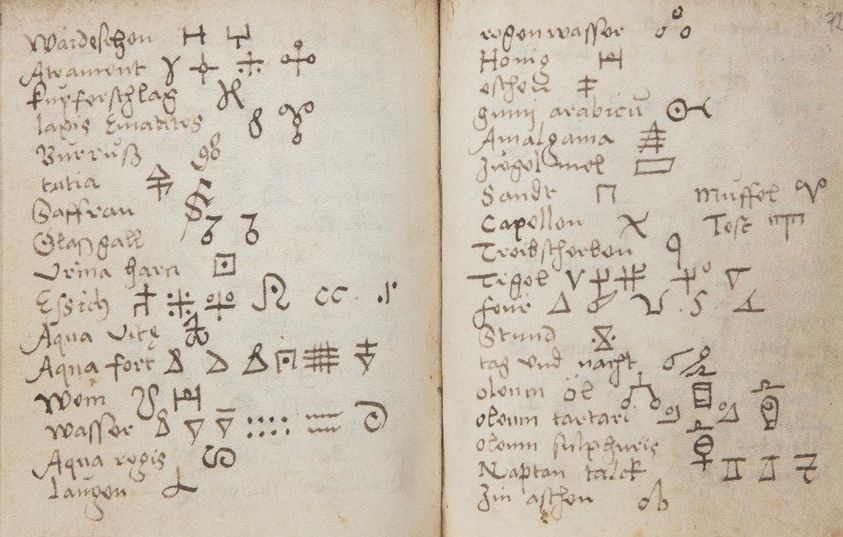 Waideschen
Atrament
kupferschlag
lapis Ematites
Burruß
tutia
Saffran
Glaßgall
Urina harn
Essich
Aqua vitę
Aqua fort
Wein
wasser
Aqua regis
laugen
regenwasser
Honig
eschen
gumi arabicū
Amalgama
Ziegelmel
Sandt Muffel
Capellen Test
Treibscherben
Tigel
feur
Stund
tag und nacht
oleum öl
oleum tartari
oleum sulphuris
talck
Zin aschen